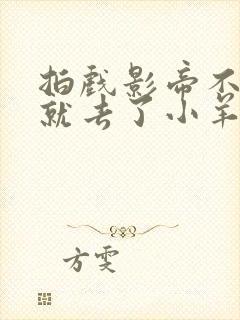 拍戏影帝不
就去了小羊
方雯